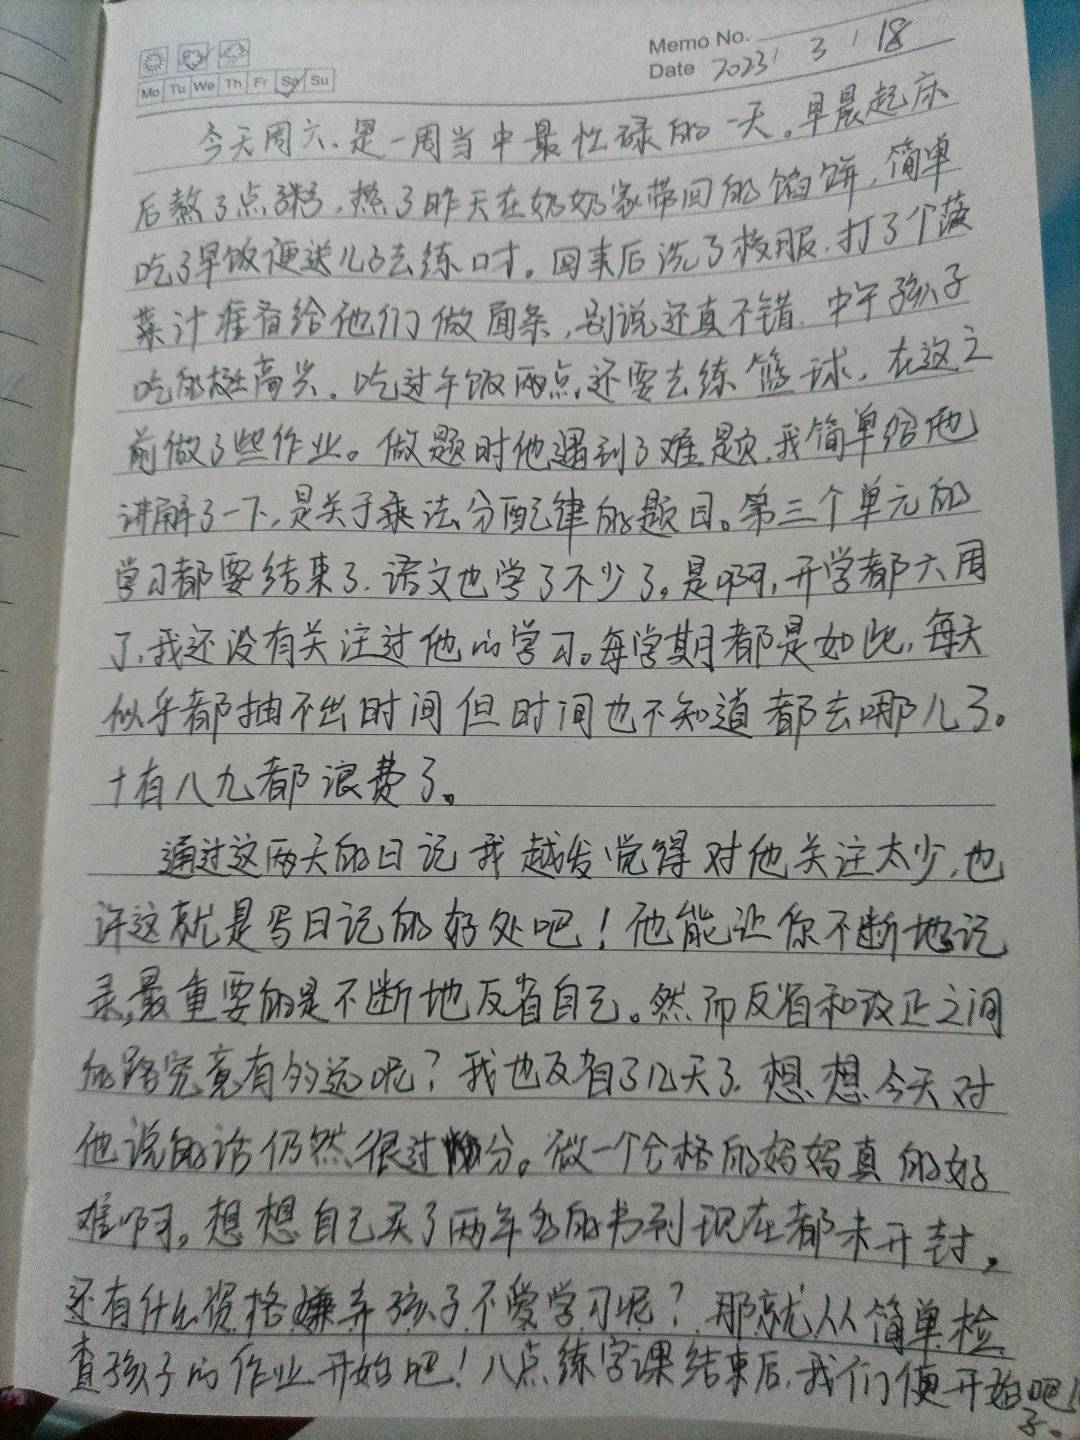 Memo No.
Mo Tu We Th Fr Sa Su
Date 2023 / 3 / 18
今天周六、是一周当中最忙碌的一天。早晨起床
后熬了点粥，热了昨天在奶奶家带回的馅饼，简单
吃了早饭便送儿子去练口才。回来后洗了校服，打了个菠
菜汁准备给他们做面条，别说还真不错，中午孩子
吃的挺高兴。吃过午饭两点，还要去练篮球，在这之
前做了些作业。做题时他遇到了难题，我简单给他
讲解了一下，是关于乘法分配律的题目。第三个单元的
学习都要结束了，语文也学了不少了。是啊，开学都六周
了，我还没有关注过他的学习。每学期都是如此，每天
似乎都抽不出时间但时间也不知道都去哪儿了。
十有八九都浪费了。
通过这两天的日记我越发觉得对他关注太少，也
许这就是写日记的好处吧！他能让你不断地记
录，最重要的是不断地反省自己。然而反省和改正之间
的路究竟有多远呢？我也反省了几天了，想想今天对
他说的话仍然很过分。做一个合格的妈妈真的好
难啊。想想自己买了两年多的书到现在都未开封，
还有什么资格嫌弃孩子不爱学习呢？那就从简单检
查孩子的作业开始吧！八点练字课结束后，我们便开始吧！
了。